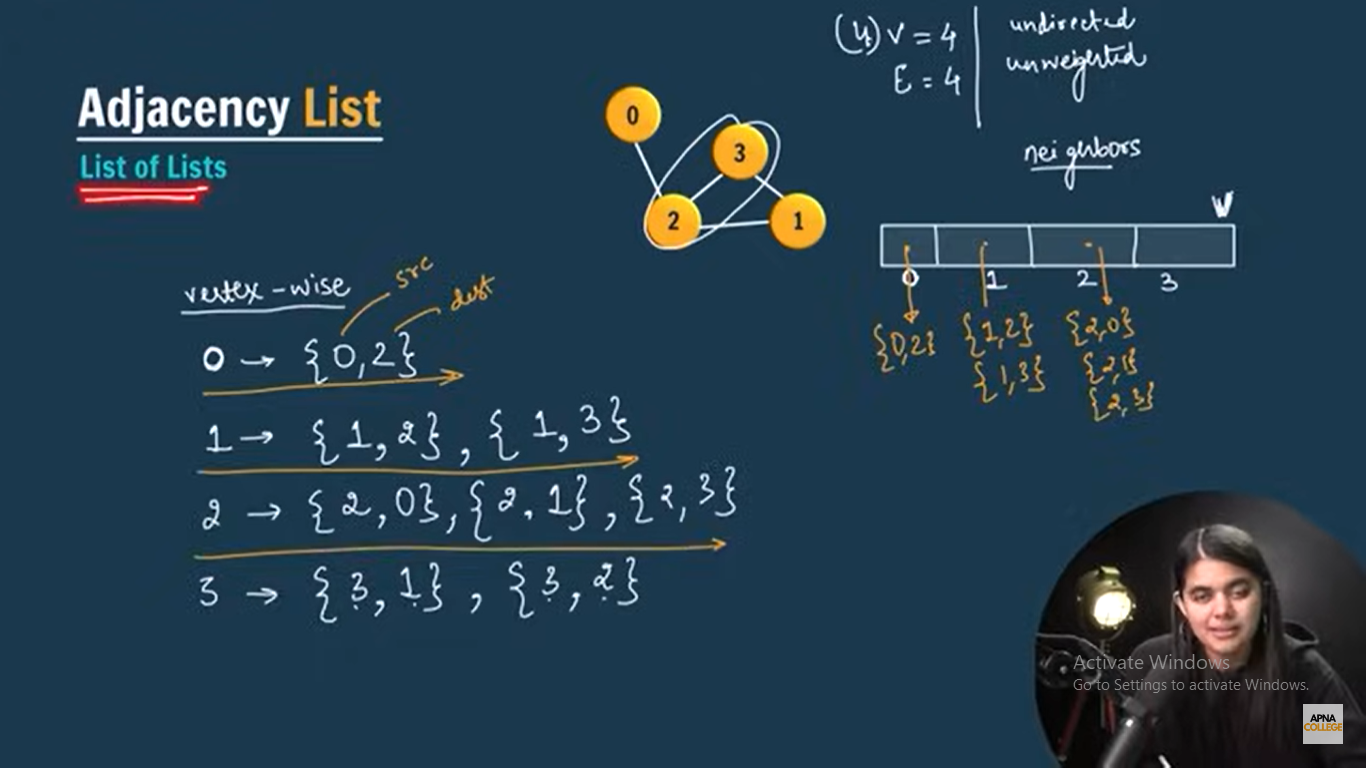 Adjacency List
List of Lists
0
3
2
1
(4) V = 4
E = 4
undirected
unweighted
neighbors
V
0 1 2 3
{0,2} {1,2} {2,0}
{1,3} {2,1}
{2,3}
vertex-wise
src
dest
0 → {0,2}
1 → {1,2}, {1,3}
2 → {2,0}, {2,1}, {2,3}
3 → {3,1}, {3,2}
Activate Windows
Go to Settings to activate Windows.
APNA
COLLEGE